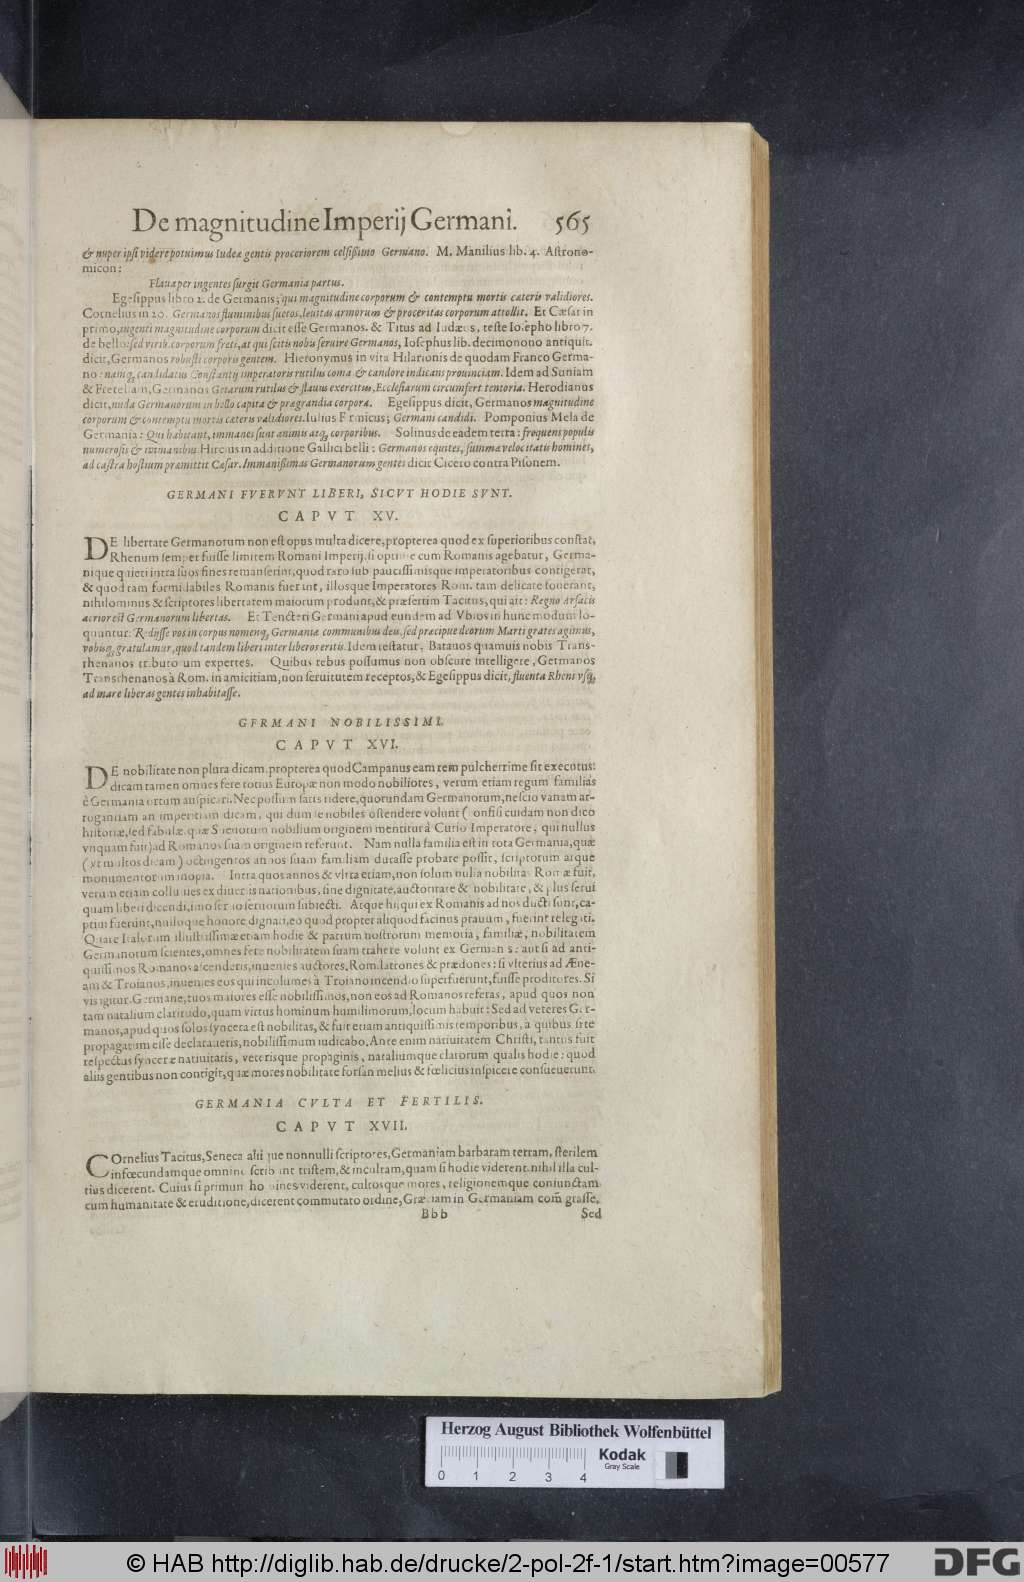 De magnitudine Imperij Germani. 565
& nuper ipsi videre potuimus Iudeæ gentis proceriorem celsißimo Germano. M. Manilius lib. 4. Astrono-
micon:
Flaua per ingentes surgit Germania partus.
Egesippus libro 2. de Germanis; qui magnitudine corporum & contemptu mortis cæteris validiores.
Cornelius in 20. Germanos fluminibus suetos, leuitas armorum & proceritas corporum attollit. Et Cæsar in
primo, ingenti magnitudine corporum dicit esse Germanos. & Titus ad Iudæos, teste Iosepho libro 7.
de bello: sed virib. corporum freti, at qui scitis nobis seruire Germanos, Iosephus lib. decimonono antiquit.
dicit, Germanos robusti corporis gentem. Hieronymus in vita Hilarionis de quodam Franco Germa-
no: namq; candidatus Constantij imperatoris rutilus coma & candore indicans prouinciam. Idem ad Suniam
& Fretellam, Germanos Getarum rutilus & flauus exercitus, Ecclesiarum circumfert tentoria. Herodianus
dicit, nuda Germanorum in bello capita & prægrandia corpora. Egesippus dicit, Germanos magnitudine
corporum & contemptu mortis cæteris validiores. Iulius Firmicus; Germani candidi. Pomponius Mela de
Germania: Qui habitant, immanes sunt animis atq; corporibus. Solinus de eadem terra: frequens populis
numerosis & immanibus Hircius in additione Gallici belli: Germanos equites, summæ velocitatis homines,
ad castra hostium præmittit Cæsar. Immanißimas Germanorum gentes dicit Cicero contra Pisonem.
GERMANI FVERVNT LIBERI, SICVT HODIE SVNT.
CAPVT XV.
DE libertate Germanorum non est opus multa dicere, propterea quod ex superioribus constat,
Rhenum semper fuisse limitem Romani Imperij, si optime cum Romanis agebatur, Germa-
nique quieti intra suos fines remanserint, quod raro sub paucissimisque imperatoribus contigerat,
& quod tam formidabiles Romanis fuerint, illosque Imperatores Rom. tam delicate fouerant,
nihilominus & scriptores libertatem maiorum produnt, & præsertim Tacitus, qui ait: Regno Arsacis
acrior est Germanorum libertas. Et Tencteri Germani apud eundem ad Vbios in hunc modum lo-
quuntur: Redijsse vos in corpus nomenq; Germaniæ communibus deis, sed præcipue deorum Marti grates agimus,
vobisq; gratulamur, quod tandem liberi inter liberos eritis. Idem testatur, Batauos quamuis nobis Trans-
rhenanos tributorum expertes. Quibus rebus possumus non obscure intelligere, Germanos
Transrhenanos à Rom. in amicitiam, non seruitutem receptos, & Egesippus dicit, fluenta Rheni vsq;
ad mare liberas gentes inhabitasse.
GERMANI NOBILISSIMI.
CAPVT XVI.
DE nobilitate non plura dicam, propterea quod Campanus eam rem pulcherrime sit executus:
dicam tamen omnes fere totius Europæ non modo nobiliores, verum etiam regum familias
è Germania ortum auspicari. Nec possum satis ridere, quorundam Germanorum, nescio vanam ar-
rogantiam an imperitiam dicam, qui dum se nobiles ostendere volunt (confisi cuidam non dico
historiæ, sed fabulæ, quæ Sueuorum nobilium originem mentitur à Curio Imperatore, qui nullus
vnquam fuit) ad Romanos suam originem referunt. Nam nulla familia est in tota Germania, quæ
(vt multos dicam) octingentos annos suam familiam durasse probare possit, scriptorum atque
monumentorum inopia. Intra quos annos & vltra etiam, non solum nulla nobilitas Romæ fuit,
verum etiam colluuies ex diuersis nationibus, sine dignitate, auctoritate & nobilitate, & plus serui
quam liberi dicendi, imo seruo seruorum subiecti. Atque hi, qui ex Romanis ad nos ducti sunt, ca-
ptiui fuerunt, nulloque honore dignati, eo quod propter aliquod facinus prauum, fuerint relegati.
Quare Italorum illustrissimæ etiam hodie & patrum nostrorum memoria, familiæ, nobilitatem
Germanorum scientes, omnes fere nobilitatem suam trahere volunt ex Germanis: aut si ad anti-
quissimos Romanos ascenderis, inuenies auctores, Rom. latrones & prædones: si vlterius ad Æne-
am & Troianos, inuenies eos qui incolumes à Troiano incendio superfuerunt, fuisse proditores. Si
vis igitur Germane, tuos maiores esse nobilissimos, non eos ad Romanos referas, apud quos non
tam natalium claritudo, quam virtus hominum humilimorum, locum habuit: Sed ad veteres Ger-
manos, apud quos solos syncera est nobilitas, & fuit etiam antiquissimis temporibus, à quibus si te
propagatum esse declaraueris, nobilissimum iudicabo. Ante enim natiuitatem Christi, tantus fuit
respectus synceræ natiuitatis, veterisque propaginis, nataliumque clarorum qualis hodie: quod
aliis gentibus non contigit, quæ mores nobilitate forsan melius & fœlicius inspicere consueuerunt.
GERMANIA CVLTA ET FERTILIS.
CAPVT XVII.
COrnelius Tacitus, Seneca aliique nonnulli scriptores, Germaniam barbaram terram, sterilem
infœcundamque omnino scribunt tristem, & incultam, quam si hodie viderent, nihil illa cul-
tius dicerent. Cuius si primum homines viderent, cultosque mores, religionemque coniunctam
cum humanitate & eruditione, dicerent commutato ordine, Græciam in Germaniam com̃igrasse.
Bbb Sed
Herzog August Bibliothek Wolfenbüttel
0 1 2 3 4
Kodak
Gray Scale
© HAB http://diglib.hab.de/drucke/2-pol-2f-1/start.htm?image=00577
DFG